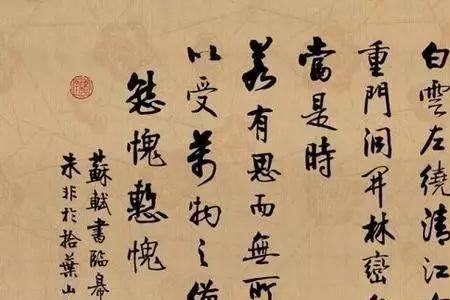 白雲左繞清江
重門洞開林巒
當是時
若有思而無所
以受萬物之
慙愧慙愧
蘇軾書臨皋
朱非於拾葉山